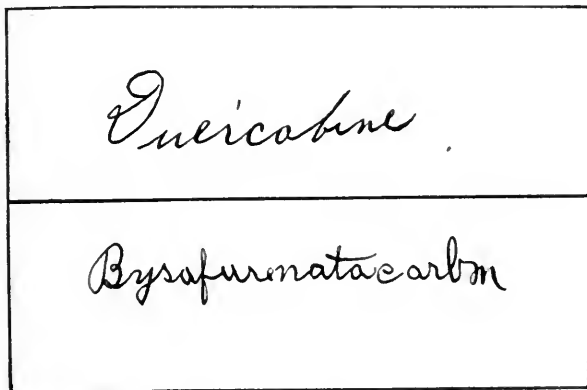 Quercobine
Bysafurmatacarbm